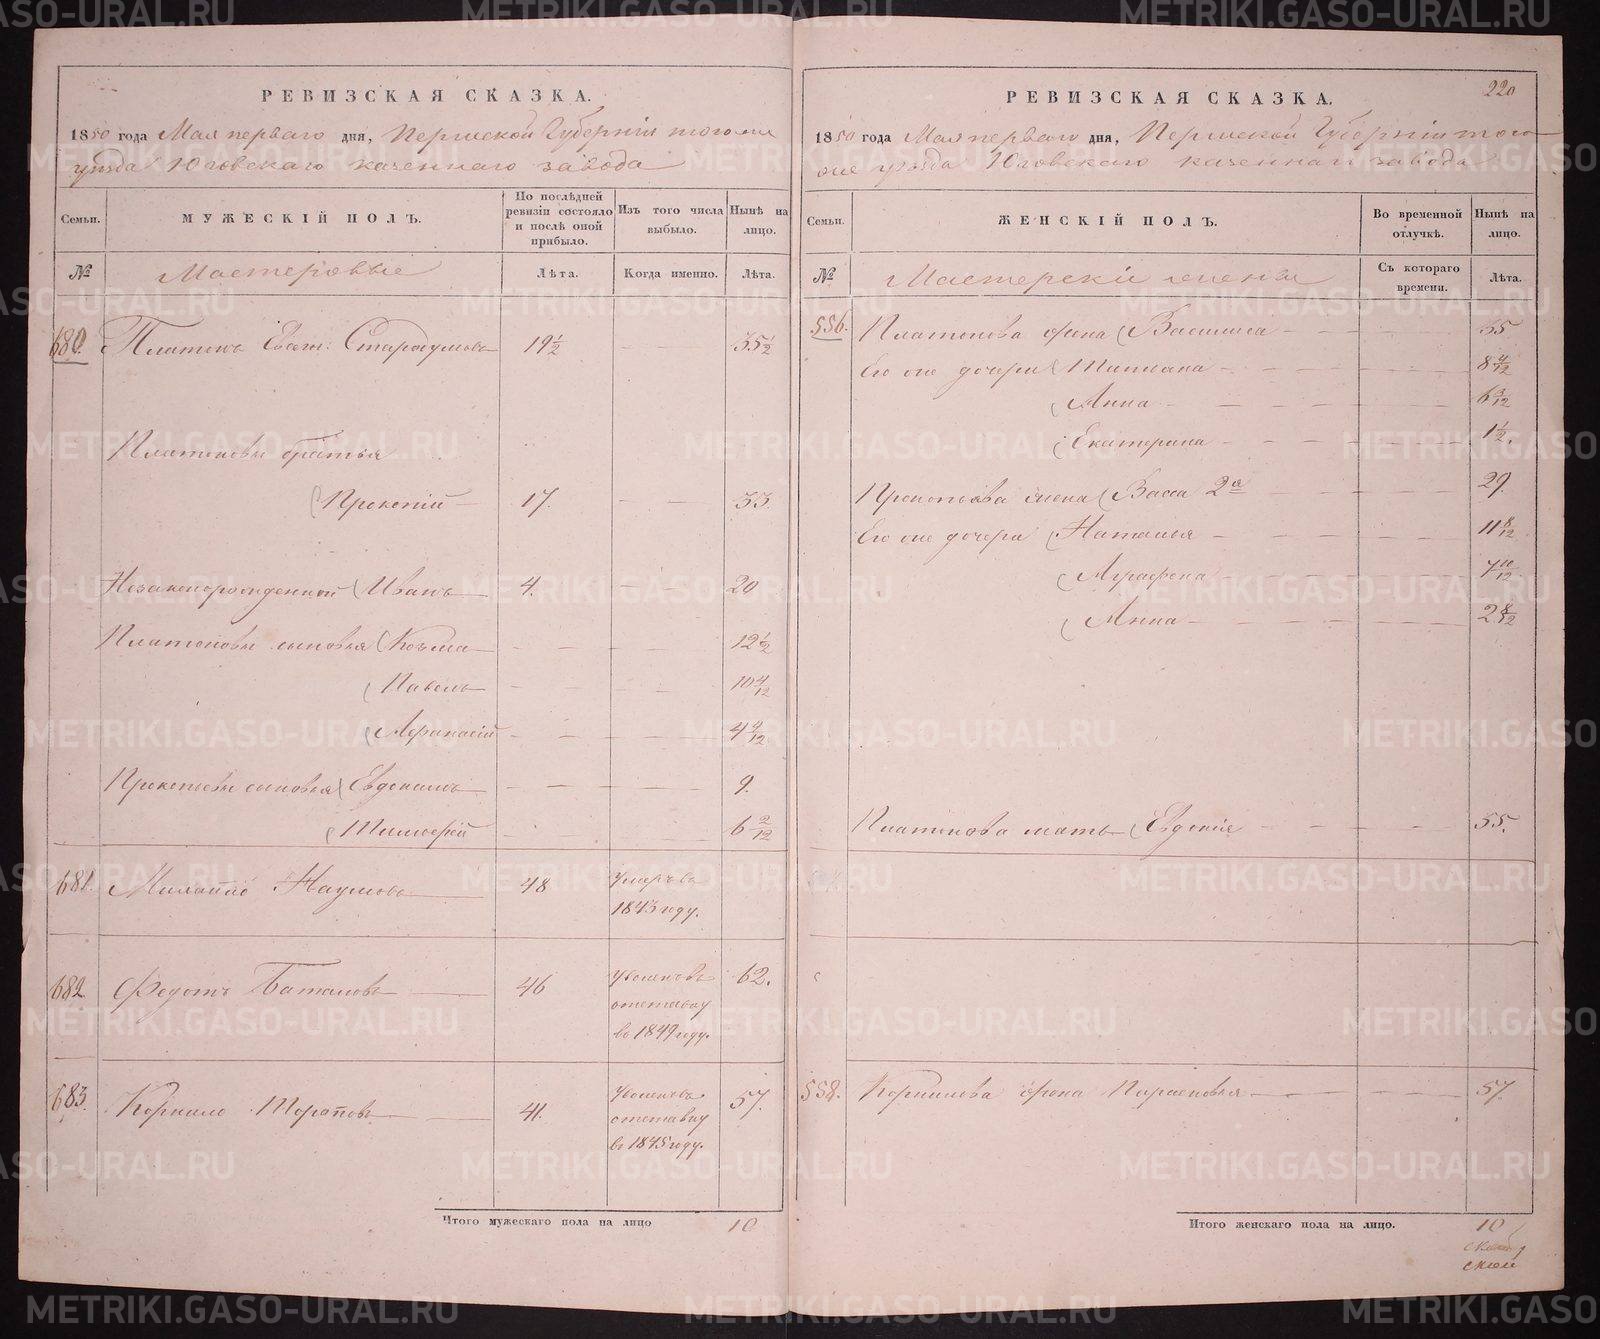 РЕВИЗСКАЯ СКАЗКА.
1850 года Мая перваго дня, Пермской Губерніи того же
уѣзда Юговскаго казеннаго завода
Семьи. МУЖЕСКІЙ ПОЛЪ. По послѣдней ревизіи состояло и послѣ оной прибыло. Изъ того числа выбыло. Нынѣ на лицо.
№ Мастеровые Лѣта. Когда именно. Лѣта.
680. Платонъ Стародумовъ 19 1/2 35 1/2
Платоновы братья
Прокопій 17. 33.
Незаконорожденной Иванъ 4. 20
Платоновы сыновья Козьма 12 1/2
Павелъ 10 4/12
Афанасій 4 9/12
Прокопьевы сыновья Евдокимъ 9.
Тимофей 6 2/12
681. Михайло Наумовъ 48 Умеръ въ
1843 году.
682. Федотъ Баталовъ 46 Уволенъ въ 62.
отставку
въ 1849 году.
683. Корнило 41. Уволенъ въ 57.
отставку
въ 1845 году.
Итого мужескаго пола на лицо 10
220
РЕВИЗСКАЯ СКАЗКА.
1850 года Мая перваго дня, Пермской Губерніи того
же уѣзда Юговскаго казеннаго завода
Семьи. ЖЕНСКІЙ ПОЛЪ. Во временной отлучкѣ. Нынѣ на лицо.
№ Мастерскі жены Съ котораго времени. Лѣта.
556. Платонова жена Василиса 35
Его же дочери Татьяна 8 4/12
Анна 6 3/12
Екатерина 1 1/2.
Прокопьева жена Васса 2я 29.
Его же дочери Наталья 11 8/12
Аграфена 7 10/12
Анна 2 8/12
Платонова мать Евдокія 55.
558. Корнилова жена Парасковья 57.
Итого женскаго пола на лицо. 10
METRIKI.GASO-URAL.RU